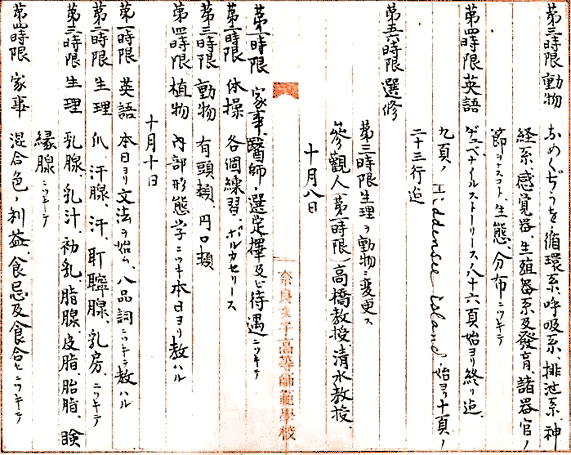 第三時限 動物 なめくぢうを循環系、呼吸系、排泄系、神
経系、感覚器、生殖器系及發育、諸器官ノ
節ヲナスコト、生態、分布ニツキテ
第四時限 英語 ヂュベナイルストーリース、八十六頁始ヨリ終リ迄、
九頁ノ Hiddensee island. 始ヨリ十頁ノ
二十三行迄
第五六時限 選修
第三時限生理ヲ動物ニ変更ス
參觀人(第一時限)高橋教授、清水教授、
十月八日
奈良女子高等師範學校
第一時限 家事、醫師ノ選定擇及ビ待遇ニツキテ
第二時限 体操 各個練習、ポルカセリース
第三時限 動物 有頭類、円口類
第四時限 植物 内部形態学ニツキ本日ヨリ教ハル
十月十日
第一時限 英語 本日ヨリ文法ヲ始ム、八品詞ニツキテ教ハル
第二時限 生理 爪、汗腺、汗、耵聹腺、乳房、ニツキテ
第三時限 生理 乳腺、乳汁、初乳、脂腺、皮脂、胎脂、瞼
縁腺ニツキテ
第四時限 家事 混合色ノ利益、食忌及食合セニツキテ